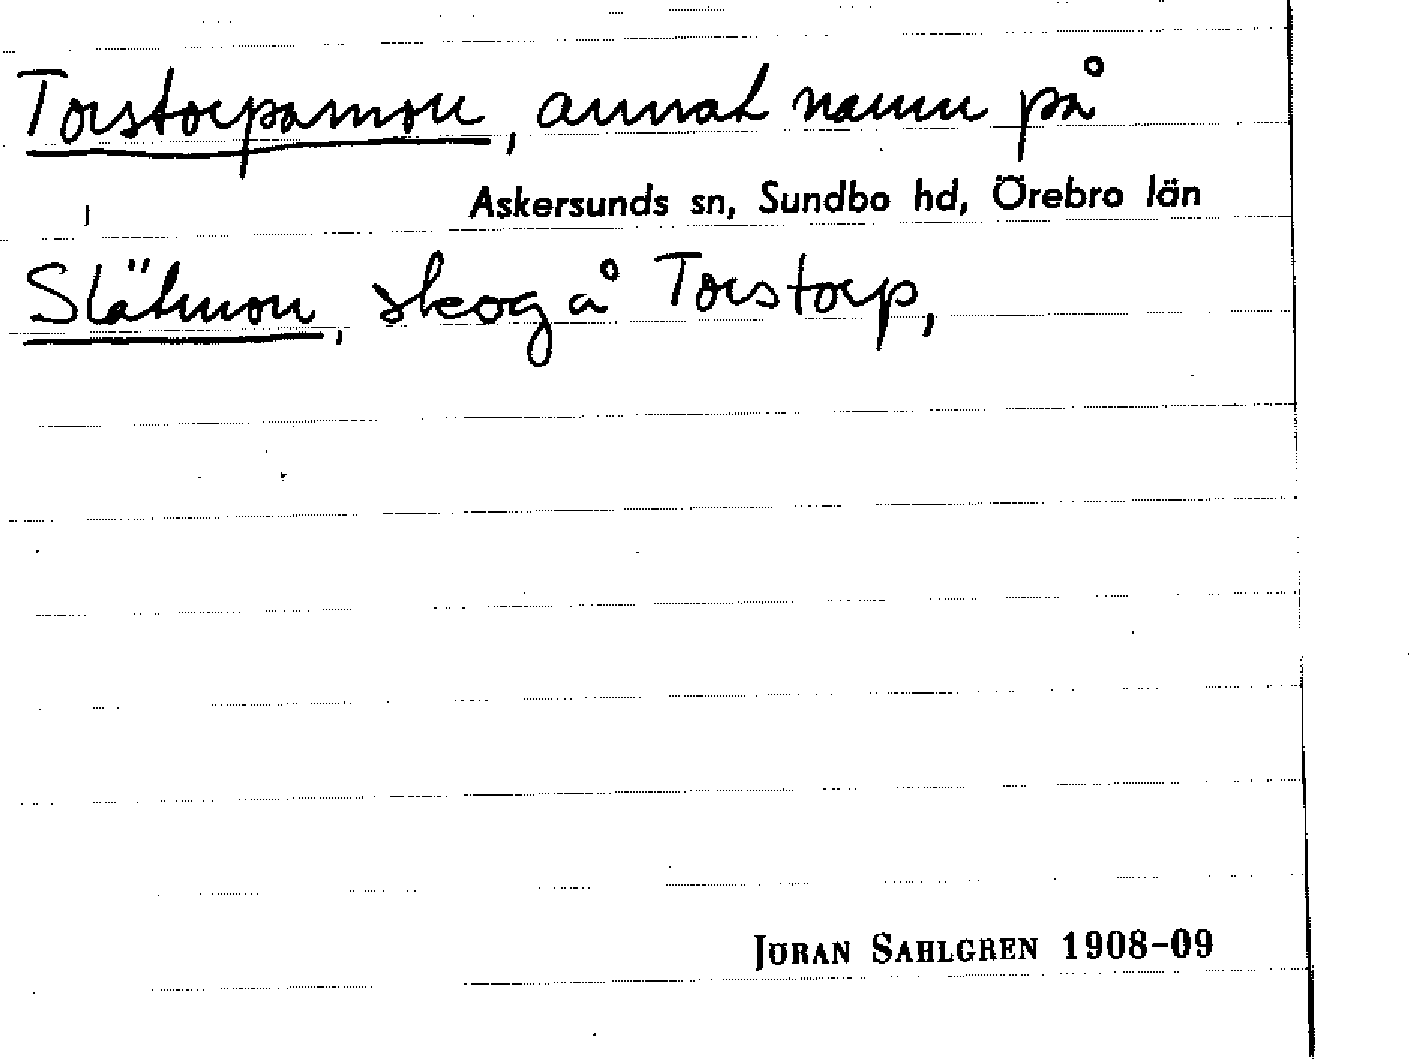 Torstorpamon, annat namn på
Askersunds sn, Sundbo hd, Örebro län
Slätmon, skog å Torstorp,
JÖRAN SAHLGREN 1908-09